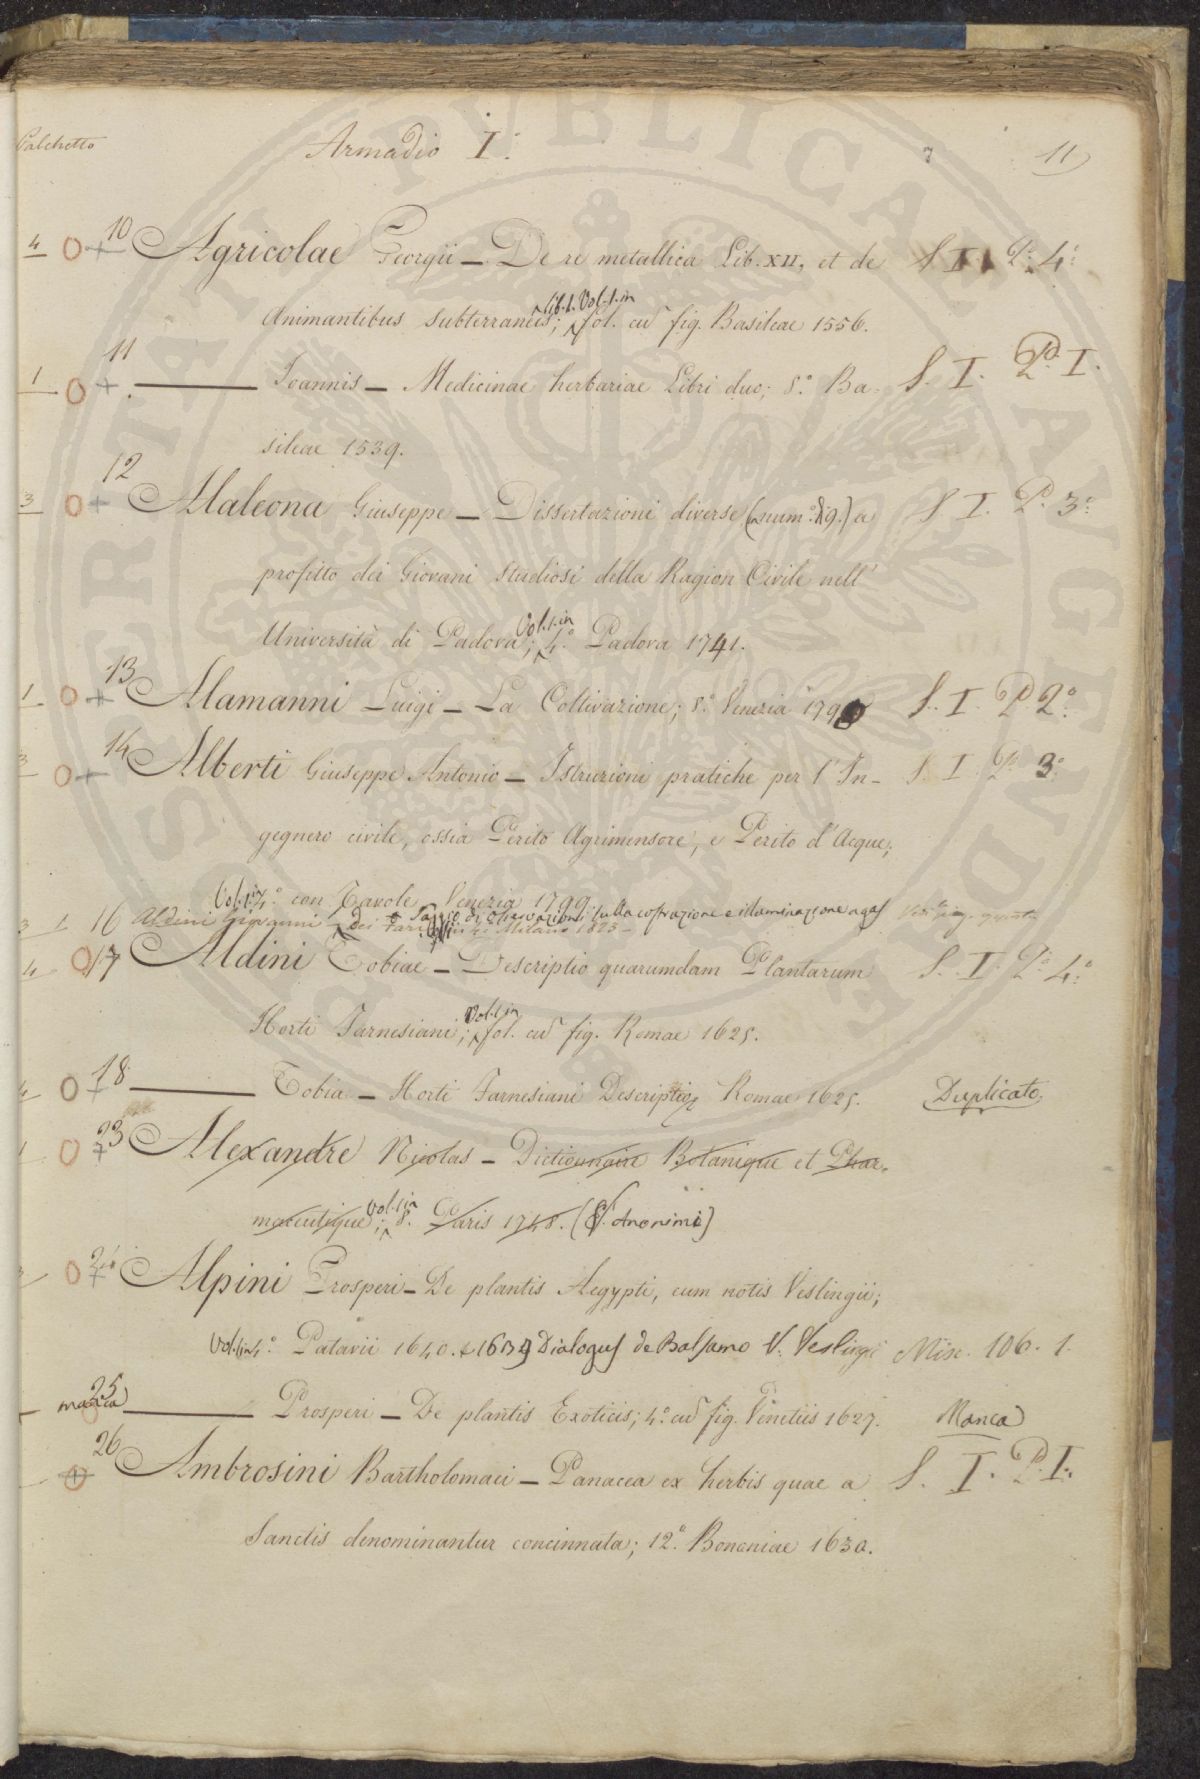 Palchetto Armadio I.° 7 11
4 O+ 10 Agricolae Georgii — De re metallica Lib. XII, et de S. I. P. 4.°
Animantibus subterraneis; lib. 1. Vol. 1. in fol. cū fig. Basileae 1556.
1 O+ 11 ——— Ioannis — Medicinae herbariae Libri duo; 8.° Ba= S. I. P. I.
sileae 1539.
3 O+ 12 Alaleona Giuseppe — Dissertazioni diverse (num.° 19.) a S. I. P. 3.°
profitto dei Giovani studiosi della Ragion Civile nell'
Università di Padova; Vol. 1. in 4.° Padova 1741.
1 O+ 13 Alamanni Luigi — La Coltivazione; 8.° Venezia 1790 S. I. P. 2.°
3 O+ 14 Alberti Giuseppe Antonio — Istruzioni pratiche per l'In- S. I. P. 3.°
gegnero civile, ossia Perito Agrimensore, e Perito d'Acque;
Vol. 1. in 4.° con Tavole. Venezia 1799.
3 1 16 Aldini Giovanni — Saggio di osservazioni sulla costruzione e illuminazione a gas
dei Fari Milano 1823 —
4 O 17 Aldini Tobiae — Descriptio quarumdam Plantarum S. I. P. 4.°
Horti Farnesiani; Vol. 1 in fol. cū fig. Romae 1625.
4 O+ 18 ——— Tobia — Horti Farnesiani Descriptio Romae 1625. Duplicato
1 O+ 23 Alexandre Nicolas — Dictionnaire Botanique et Phar-
maceutique; vol. 1 in 8. Paris 1748. (V. Anonimi)
3 O+ 24 Alpini Prosperi — De plantis Aegypti, cum notis Veslingii;
Vol. 1 in 4.° Patavii 1640. e 1639 Dialogus de Balsamo V. Veslingii Misc. 106. 1.
manca 25 ——— Prosperi — De plantis Exoticis; 4.° cū fig. Venetiis 1627. Manca
O+ 26 Ambrosini Bartholomaei — Panacea ex herbis quae a S. I. P. I.
Sanctis denominantur concinnata; 12.° Bononiae 1630.